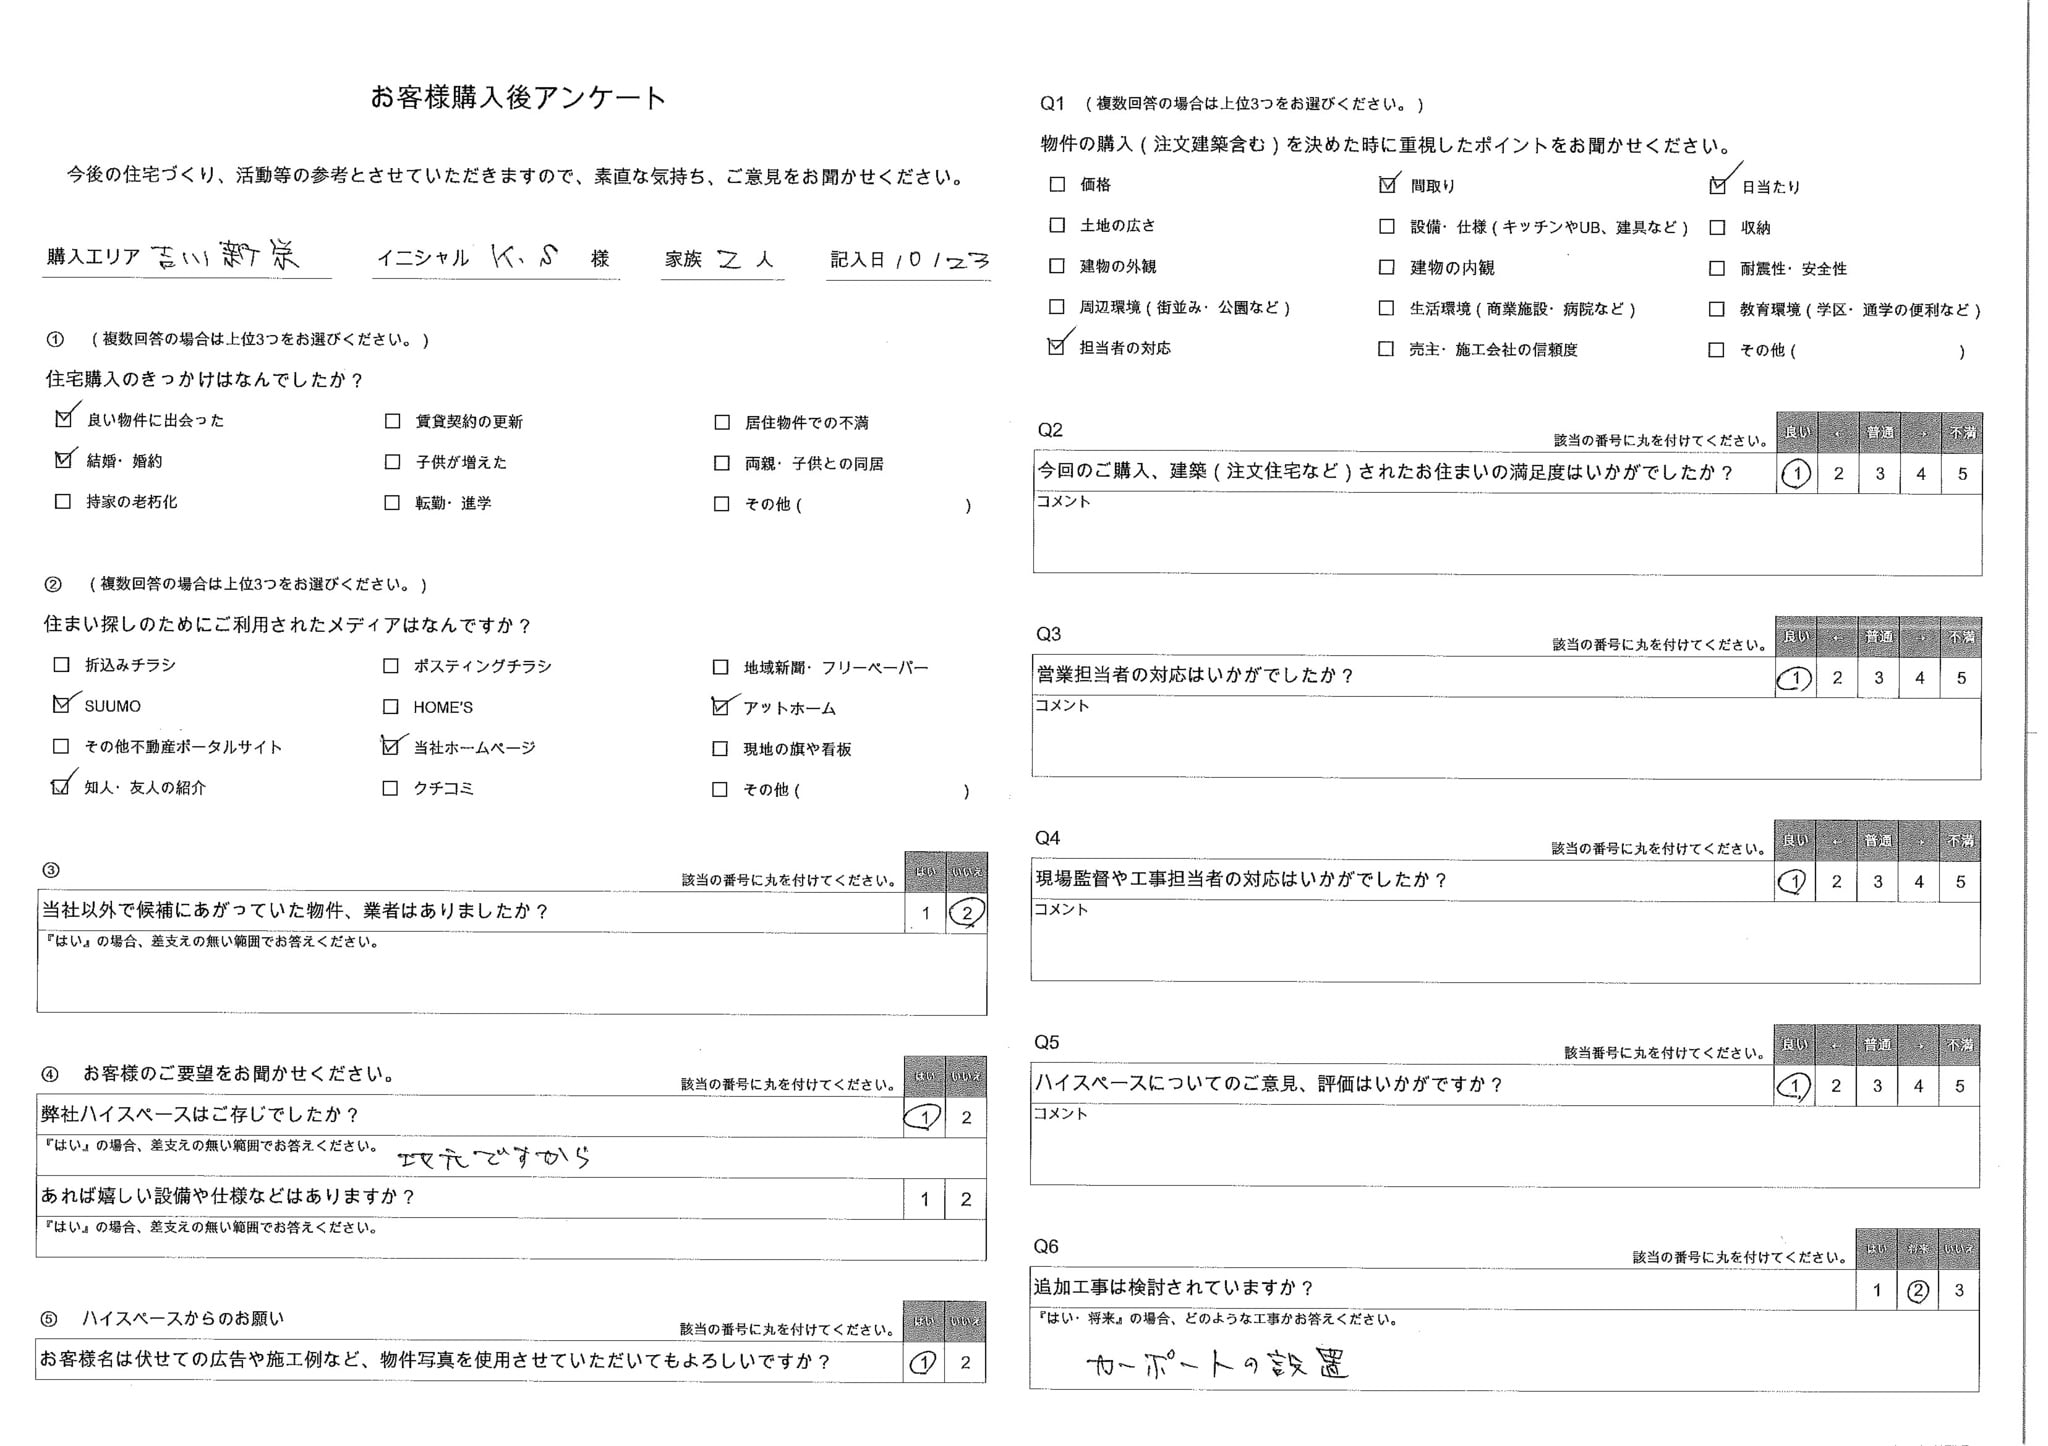 お客様購入後アンケート
今後の住宅づくり、活動等の参考とさせていただきますので、素直な気持ち、ご意見をお聞かせください。
購入エリア 吉川新栄 イニシャル K.S 様 家族 2 人 記入日 10/23
① (複数回答の場合は上位3つをお選びください。)
住宅購入のきっかけはなんでしたか？
☑ 良い物件に出会った □ 賃貸契約の更新 □ 居住物件での不満
☑ 結婚・婚約 □ 子供が増えた □ 両親・子供との同居
□ 持家の老朽化 □ 転勤・進学 □ その他( )
② (複数回答の場合は上位3つをお選びください。)
住まい探しのためにご利用されたメディアはなんですか？
□ 折込みチラシ □ ポスティングチラシ □ 地域新聞・フリーペーパー
☑ SUUMO □ HOME'S ☑ アットホーム
□ その他不動産ポータルサイト ☑ 当社ホームページ □ 現地の旗や看板
☑ 知人・友人の紹介 □ クチコミ □ その他( )
③ 該当の番号に丸を付けてください。 はい いいえ
当社以外で候補にあがっていた物件、業者はありましたか？ 1 ②
『はい』の場合、差支えの無い範囲でお答えください。
④ お客様のご要望をお聞かせください。 該当の番号に丸を付けてください。 はい いいえ
弊社ハイスペースはご存じでしたか？ ① 2
『はい』の場合、差支えの無い範囲でお答えください。 地元ですから
あれば嬉しい設備や仕様などはありますか？ 1 2
『はい』の場合、差支えの無い範囲でお答えください。
⑤ ハイスペースからのお願い 該当の番号に丸を付けてください。 はい いいえ
お客様名は伏せての広告や施工例など、物件写真を使用させていただいてもよろしいですか？ ① 2
Q1 (複数回答の場合は上位3つをお選びください。)
物件の購入(注文建築含む)を決めた時に重視したポイントをお聞かせください。
□ 価格 ☑ 間取り ☑ 日当たり
□ 土地の広さ □ 設備・仕様(キッチンやUB、建具など) □ 収納
□ 建物の外観 □ 建物の内観 □ 耐震性・安全性
□ 周辺環境(街並み・公園など) □ 生活環境(商業施設・病院など) □ 教育環境(学区・通学の便利など)
☑ 担当者の対応 □ 売主・施工会社の信頼度 □ その他( )
Q2 該当の番号に丸を付けてください。 良い ← 普通 → 不満
今回のご購入、建築(注文住宅など)されたお住まいの満足度はいかがでしたか？ ① 2 3 4 5
コメント
Q3 該当の番号に丸を付けてください。 良い ← 普通 → 不満
営業担当者の対応はいかがでしたか？ ① 2 3 4 5
コメント
Q4 該当の番号に丸を付けてください。 良い ← 普通 → 不満
現場監督や工事担当者の対応はいかがでしたか？ ① 2 3 4 5
コメント
Q5 該当番号に丸を付けてください。 良い ← 普通 → 不満
ハイスペースについてのご意見、評価はいかがですか？ ① 2 3 4 5
コメント
Q6 該当の番号に丸を付けてください。 はい 将来 いいえ
追加工事は検討されていますか？ 1 ② 3
『はい・将来』の場合、どのような工事かお答えください。
カーポートの設置